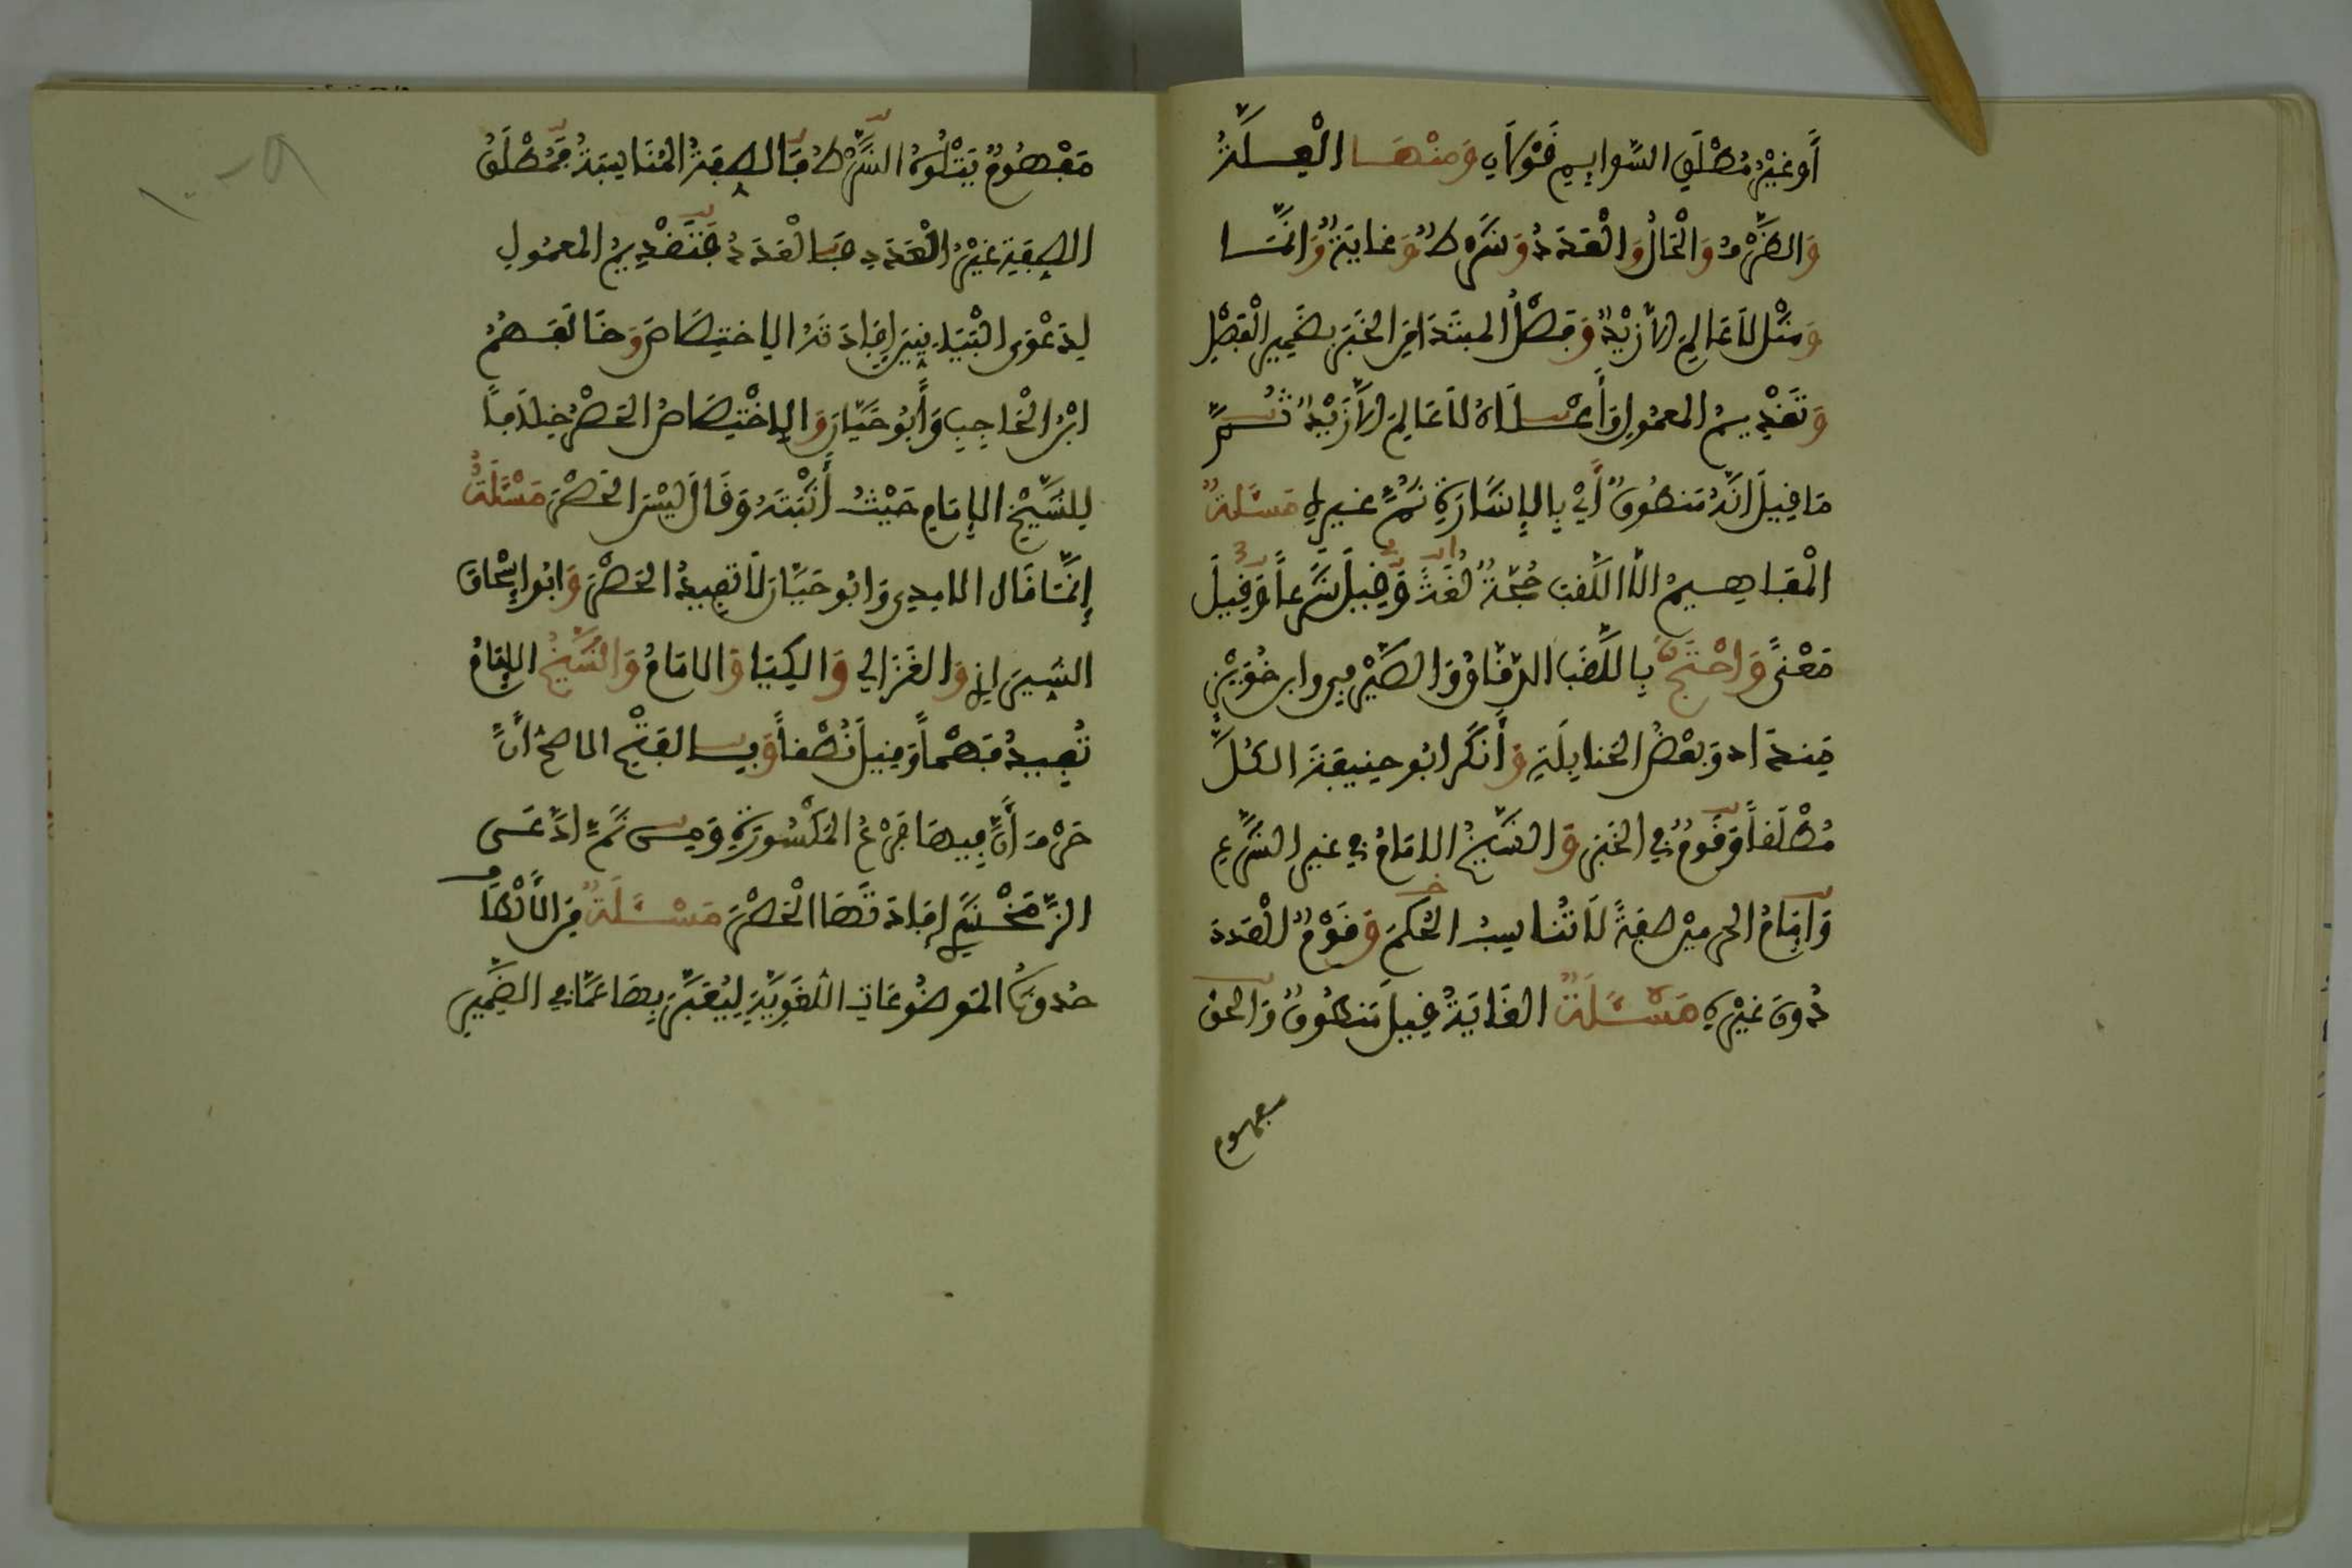 أَوْ غَيْرُ مُطْلَقِ السَّوَايِمِ قَوْلَانِ وَمِنْهَا الْعِلَّةُ
وَالظَّرْفُ وَالْحَالُ وَالْعَدَدُ وَشَرْطٌ وَغَايَةٌ وَإِنَّمَا
وَمِثْلُ لَا عَالِمَ إِلَّا زَيْدٌ وَفَصْلُ الْمُبْتَدَإِ مِنَ الْخَبَرِ بِضَمِيرِ الْفَصْلِ
وَتَقْدِيمُ الْمَعْمُولِ وَأَعْلَاهُ لَا عَالِمَ إِلَّا زَيْدٌ ثُمَّ
مَا قِيلَ إِنَّهُ مَنْطُوقٌ أَيْ بِالْإِشَارَةِ ثُمَّ غَيْرِهِ مَسْئَلَةٌ
الْمَفَاهِيمُ إِلَّا اللَّقَبَ حُجَّةٌ لُغَةً وَقِيلَ شَرْعاً وَقِيلَ
مَعْنًى وَاحْتَجَّ بِاللَّقَبِ الدَّقَّاقُ وَالصَّيْرَفِي وَابْنُ خُوَيْزِ
مِنْدَادَ وَبَعْضُ الْحَنَابِلَةِ وَأَنْكَرَ أَبُو حَنِيفَةَ الْكُلَّ
مُطْلَقاً وَقَوْمٌ فِي الْخَبَرِ وَالشَّيْخُ الْإِمَامُ فِي غَيْرِ الشَّرْعِ
وَإِمَامُ الْحَرَمَيْنِ صِفَةً لَا تُنَاسِبُ الْحُكْمَ وَقَوْمٌ الْعَدَدَ
دُونَ غَيْرِهِ مَسْئَلَةٌ الْغَايَةُ قِيلَ مَنْطُوقٌ وَالْحَقُّ
مفهوم
مَفْهُومٌ يَتْلُوهُ الشَّرْطُ فَالصِّفَةُ الْمُنَاسِبَةُ فَمُطْلَقُ
الصِّفَةِ غَيْرُ الْعَدَدِ فَالْعَدَدُ فَتَقْدِيمُ الْمَعْمُولِ
لِدَعْوَى الْبَيَانِيِّينَ إِفَادَتَهُ الِاخْتِصَاصَ وَخَالَفَهُمُ
ابْنُ الْحَاجِبِ وَأَبُو حَيَّانَ وَالِاخْتِصَاصُ الْحَصْرُ خِلَافاً
لِلشَّيْخِ الْإِمَامِ حَيْثُ أَثْبَتَهُ وَقَالَ لَيْسَ الْحَصْرَ مَسْئَلَةٌ
إِنَّمَا قَالَ الْآمِدِي وَأَبُو حَيَّانَ لَا تُفِيدُ الْحَصْرَ وَأَبُو إِسْحَاقَ
الشِّيرَازِي وَالْغَزَالِي وَالْكِيَا وَالْإِمَامُ وَالشَّيْخُ الْإِمَامُ
تُفِيدُ فَهْماً وَقِيلَ نُطْقاً وَبِالْفَتْحِ الْأَصَحُّ أَنَّ
حَرْفَ أَنَّ فِيهَا فَرْعُ الْمَكْسُورَةِ وَمِنْ ثَمَّ ادَّعَى
الزَّمَخْشَرِي إِفَادَتَهَا الْحَصْرَ مَسْئَلَةٌ مِنَ الْأَلْطَافِ
حُدُوثُ الْمَوْضُوعَاتِ اللُّغَوِيَّةِ لِيُعَبَّرَ بِهَا عَمَّا فِي الضَّمِيرِ